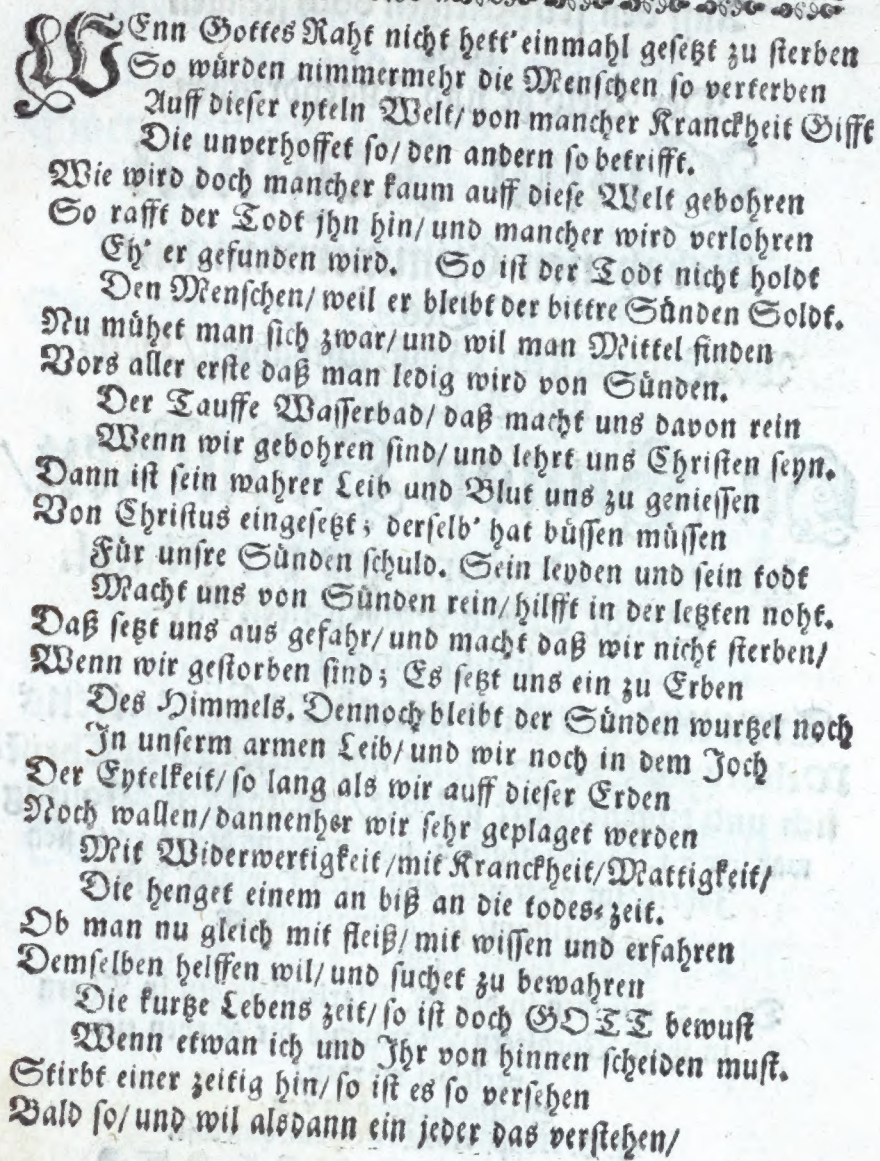 WEnn Gottes Raht nicht hett' einmahl gesetzt zu sterben
So würden nimmermehr die Menschen so verterben
Auff dieser eyteln Welt/ von mancher Kranckheit Gifft
Die unverhoffet so/ den andern so betrifft.
Wie wird doch mancher kaum auff diese Welt gebohren
So rafft der Todt jhn hin/ und mancher wird verlohren
Eh' er gefunden wird. So ist der Todt nicht holdt
Den Menschen/ weil er bleibt der bittre Sünden Soldt.
Nu mühet man sich zwar/ und wil man Mittel finden
Vors aller erste daß man ledig wird von Sünden.
Der Tauffe Wasserbad/ daß macht uns davon rein
Wenn wir gebohren sind/ und lehrt uns Christen seyn.
Dann ist sein wahrer Leib und Blut uns zu geniessen
Von Christus eingesetzt; derselb' hat büssen müssen
Für unsre Sünden schuld. Sein leyden und sein todt
Macht uns von Sünden rein/ hilfft in der letzten noht.
Daß setzt uns aus gefahr/ und macht daß wir nicht sterben/
Wenn wir gestorben sind; Es setzt uns ein zu Erben
Des Himmels. Dennoch bleibt der Sünden wurtzel noch
In unserm armen Leib/ und wir noch in dem Joch
Der Eytelkeit/ so lang als wir auff dieser Erden
Noch wallen/ dannenher wir sehr geplaget werden
Mit Widerwertigkeit/ mit Kranckheit/ Mattigkeit/
Die henget einem an biß an die todes-zeit.
Ob man nu gleich mit fleiß/ mit wissen und erfahren
Demselben helffen wil/ und suchet zu bewahren
Die kurtze Lebens zeit/ so ist doch GOTT bewust
Wenn etwan ich und Ihr von hinnen scheiden must.
Stirbt einer zeitig hin/ so ist es so versehen
Bald so/ und wil alsdann ein jeder das verstehen/